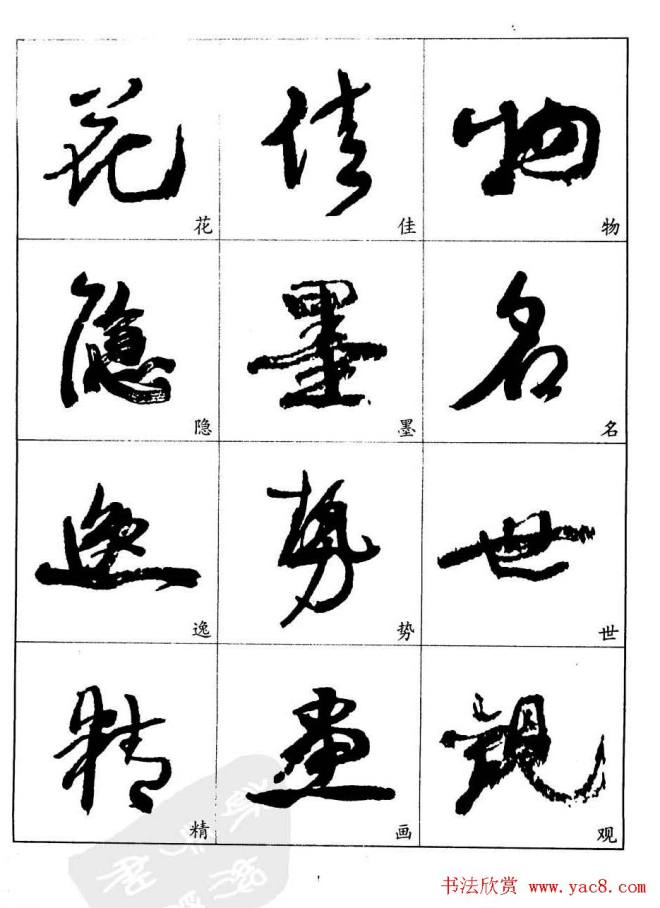 花 佳 物
花 佳 物
隱 墨 名
隐 墨 名
逸 勢 世
逸 势 世
精 畫 觀
精 画 观
书法欣赏 www.yac8.com